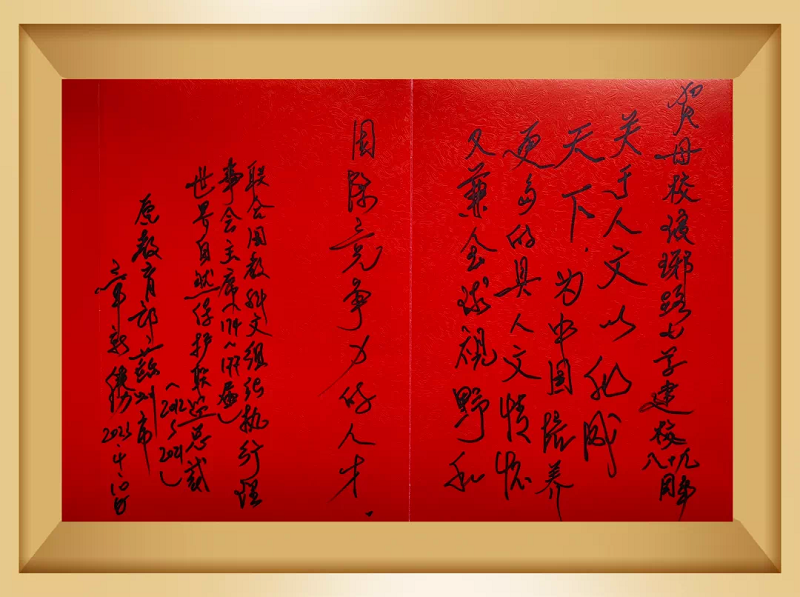 贺母校琅琊路小学建校八十九周年
关于人文以化成
天下.为中国培养
更多的具人文情怀
又兼全球视野和
国际竞争力的人才.
联合国教科文组织执行理
事会主席(174~177届)
世界自然保护联盟总裁
(2012~2021)
原教育部、苏州市
章新胜 2023.4.